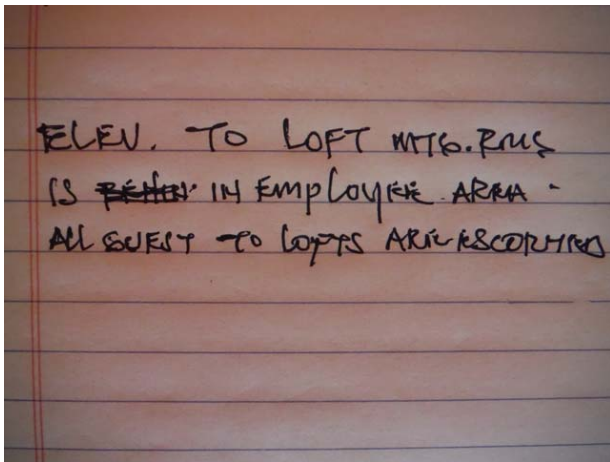 ELEV. TO LOFT MTG. RMS
IS IN EMPLOYEE AREA.
ALL GUEST TO LOFTS ARE ESCORTED